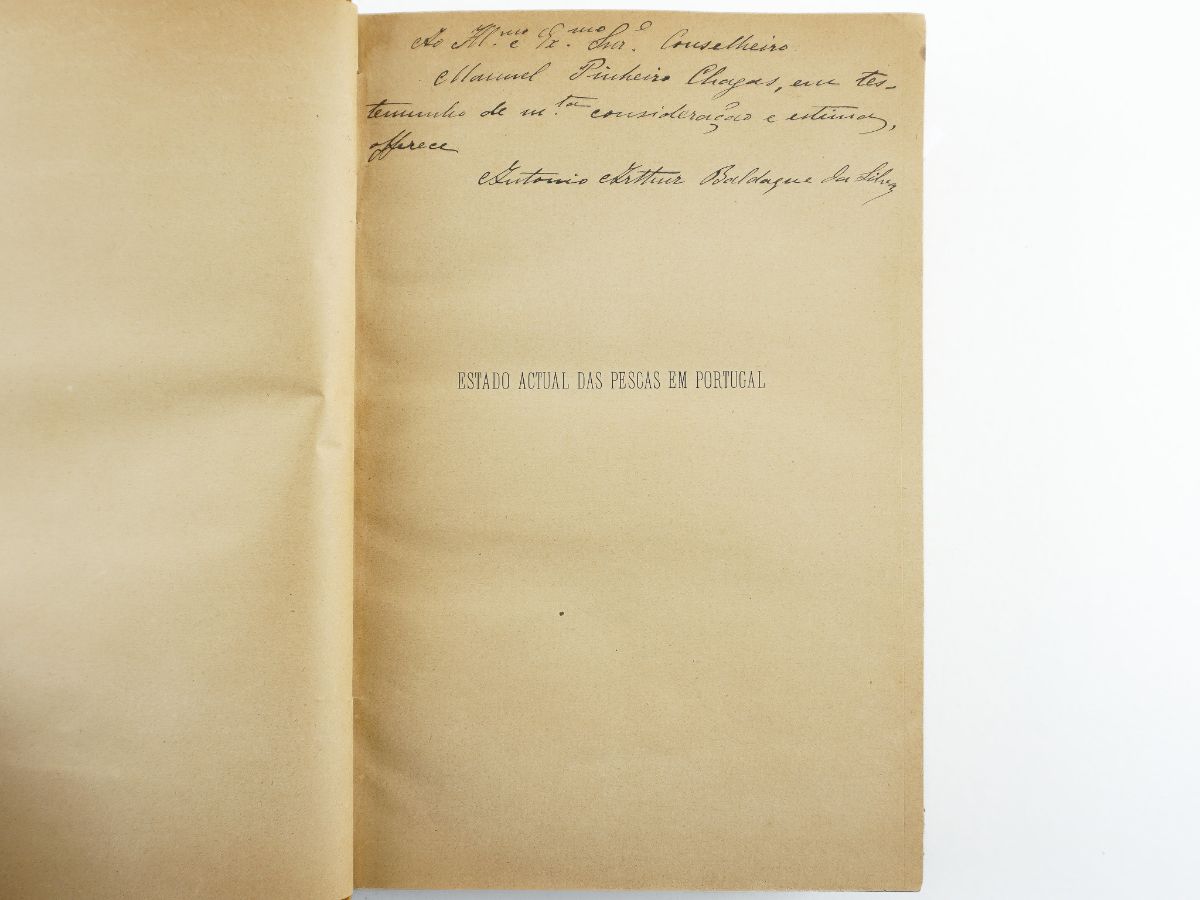 Ao Ill.mo e Ex.mo Snr. Conselheiro
Manuel Pinheiro Chagas, em tes-
temunho de m.ta consideração e estima,
offrece
Antonio Arthur Baldaque da Silva
ESTADO ACTUAL DAS PESCAS EM PORTUGAL